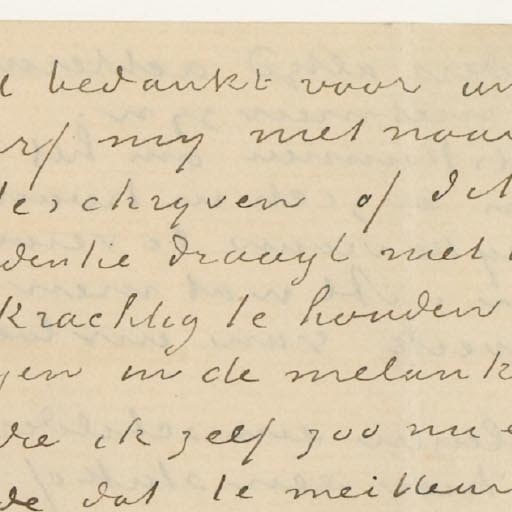 bedankt voor
my niet naar
beschryven of dit
denke draayt met
krachtig te houden
in de melank
die ik zelf zoo
de dat te meilleur